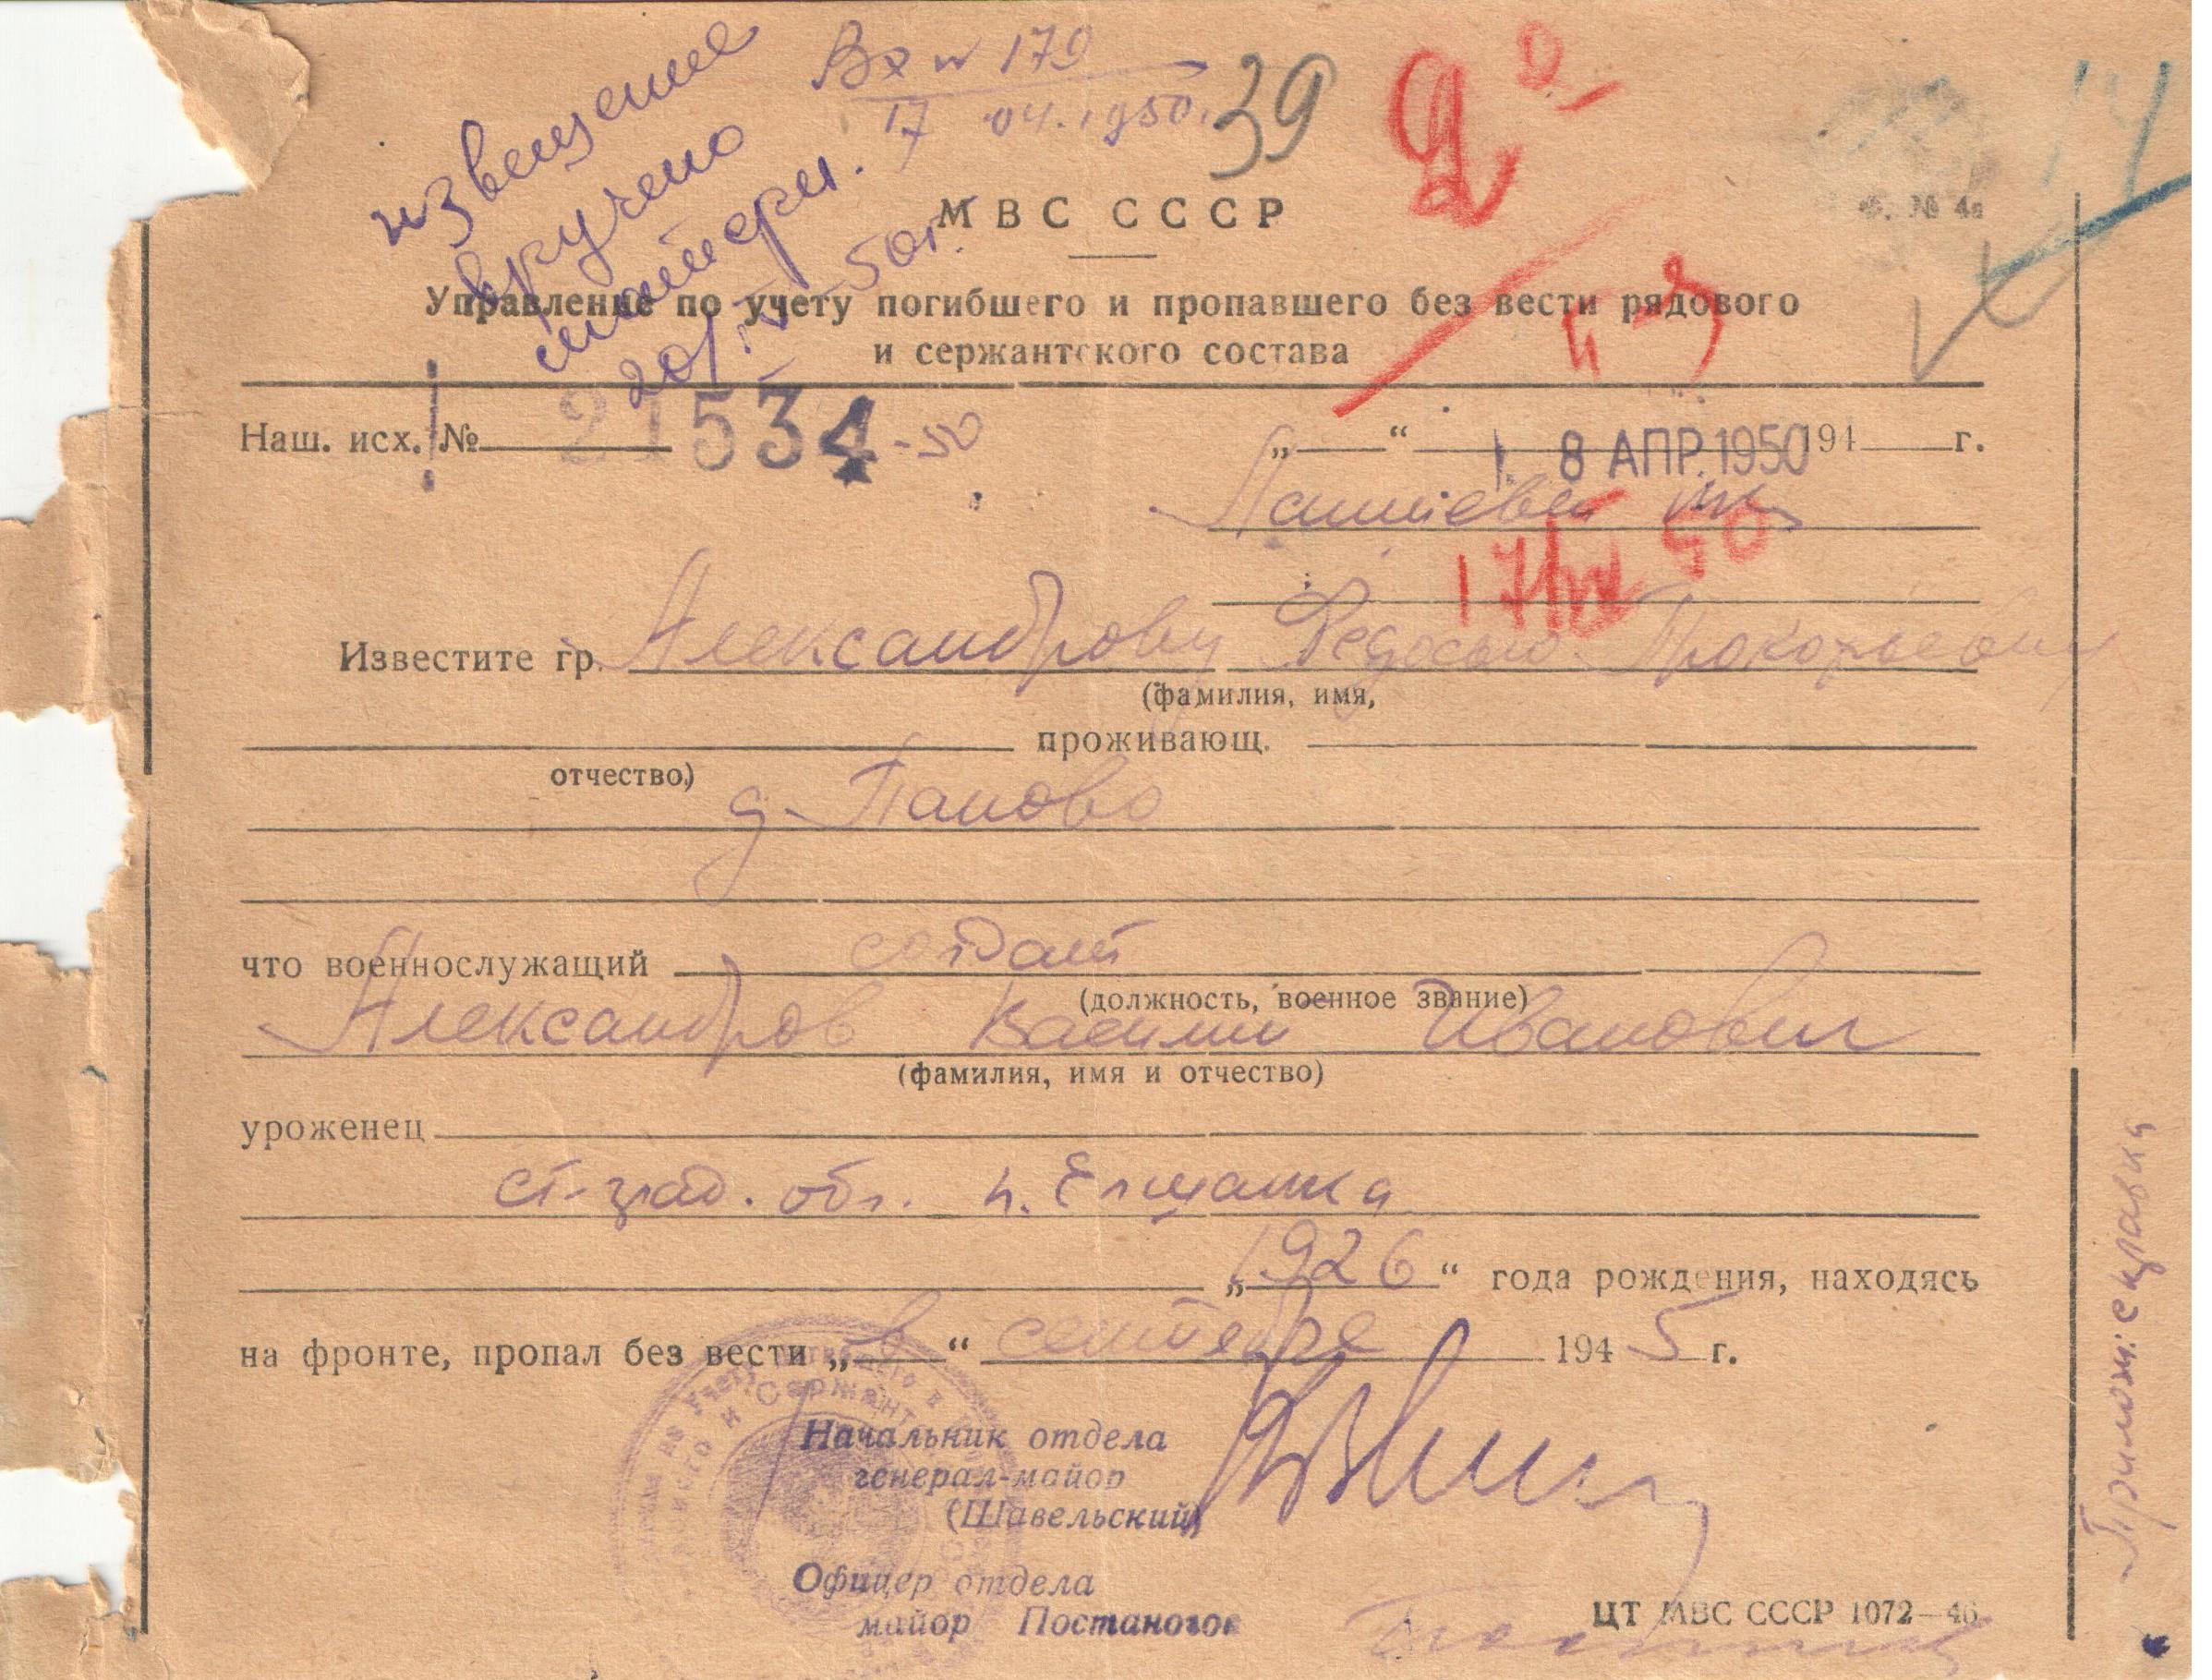 извещение
вручено
Вх № 179
17 04.1950г.
39
14
50г.
МВС СССР
Управление по учету погибшего и пропавшего без вести рядового
и сержантского состава
Наш. исх. № 21534 -50
„ “ 8 АПР. 1950 194 г.
17/IV 50
Известите гр. Александрову Федосью Прокофьевну
(фамилия, имя,
проживающ.
отчество)
д. Паново
что военнослужащий солдат
(должность, военное звание)
Александров Василий Иванович
(фамилия, имя и отчество)
уроженец
ст-град. обл. п. Елшанка
„1926“ года рождения, находясь
на фронте, пропал без вести „в“ сентябре 1945 г.
Начальник отдела
генерал-майор
(Шавельский)
Офицер отдела
майор Постаногов
ЦТ МВС СССР 1072—46
Прилож: справка